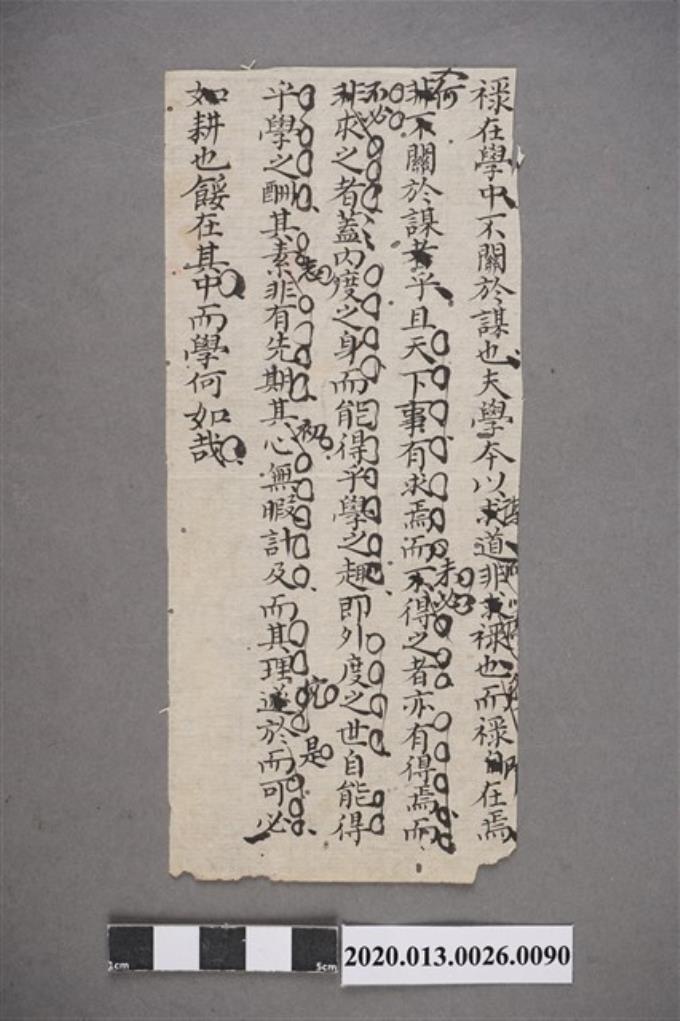 祿在學中不關於謀也夫學本以求道非求祿也而祿自在焉
非不關於謀者乎且天下事有求焉而不得之者亦有得焉而
非求之者蓋內度之身而能得乎學之趣即外度之世自能得
乎學之酬其素非有先期其心無暇計及而其理遂於而可必
如耕也餒在其中而學何如哉
何
未必
不必
者
初
完
是
1cm
5cm
2020.013.0026.0090